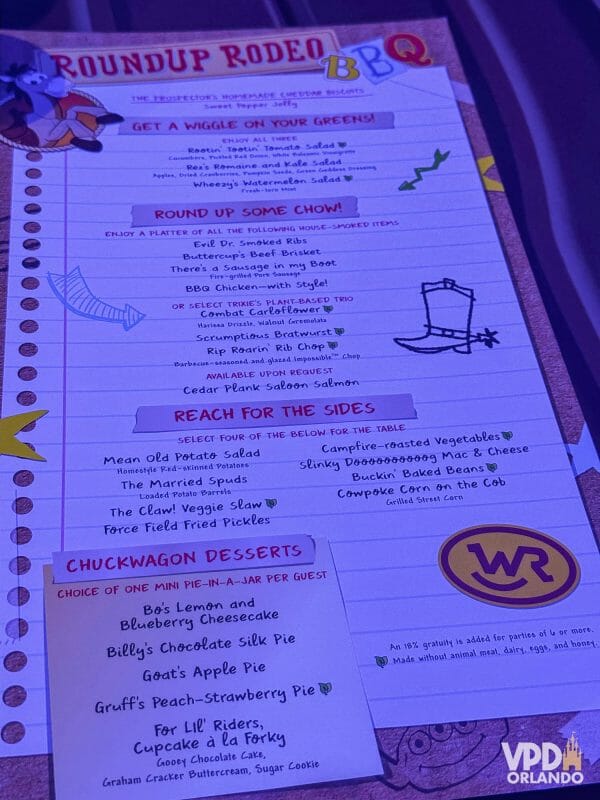 ROUNDUP RODEO BBQ
THE PROSPECTOR'S HOMEMADE CHEDDAR BISCUITS
Sweet Pepper Jelly
GET A WIGGLE ON YOUR GREENS!
ENJOY ALL THREE
Rootin' Tootin' Tomato Salad
Cucumbers, Pickled Red Onion, White Balsamic Vinaigrette
Rex's Romaine and Kale Salad
Apples, Dried Cranberries, Pumpkin Seeds, Green Goddess Dressing
Wheezy's Watermelon Salad
Fresh-torn Mint
ROUND UP SOME CHOW!
ENJOY A PLATTER OF ALL THE FOLLOWING HOUSE-SMOKED ITEMS
Evil Dr. Smoked Ribs
Buttercup's Beef Brisket
There's a Sausage in my Boot
Fire-grilled Pork Sausage
BBQ Chicken—with Style!
OR SELECT TRIXIE'S PLANT-BASED TRIO
Combat Carloflower
Harissa Drizzle, Walnut Gremolata
Scrumptious Bratwurst
Rip Roarin' Rib Chop
Barbecue-seasoned and glazed Impossible™ Chop
AVAILABLE UPON REQUEST
Cedar Plank Saloon Salmon
REACH FOR THE SIDES
SELECT FOUR OF THE BELOW FOR THE TABLE
Mean Old Potato Salad
Homestyle Red-skinned Potatoes
The Married Spuds
Loaded Potato Barrels
The Claw! Veggie Slaw
Force Field Fried Pickles
Campfire-roasted Vegetables
Slinky Doooooooooog Mac & Cheese
Buckin' Baked Beans
Cowpoke Corn on the Cob
Grilled Street Corn
CHUCKWAGON DESSERTS
CHOICE OF ONE MINI PIE-IN-A-JAR PER GUEST
Bo's Lemon and
Blueberry Cheesecake
Billy's Chocolate Silk Pie
Goat's Apple Pie
Gruff's Peach-Strawberry Pie
For Lil' Riders,
Cupcake à la Forky
Gooey Chocolate Cake,
Graham Cracker Buttercream, Sugar Cookie
WR
An 18% gratuity is added for parties of 6 or more.
Made without animal meat, dairy, eggs, and honey.
VPD
ORLANDO